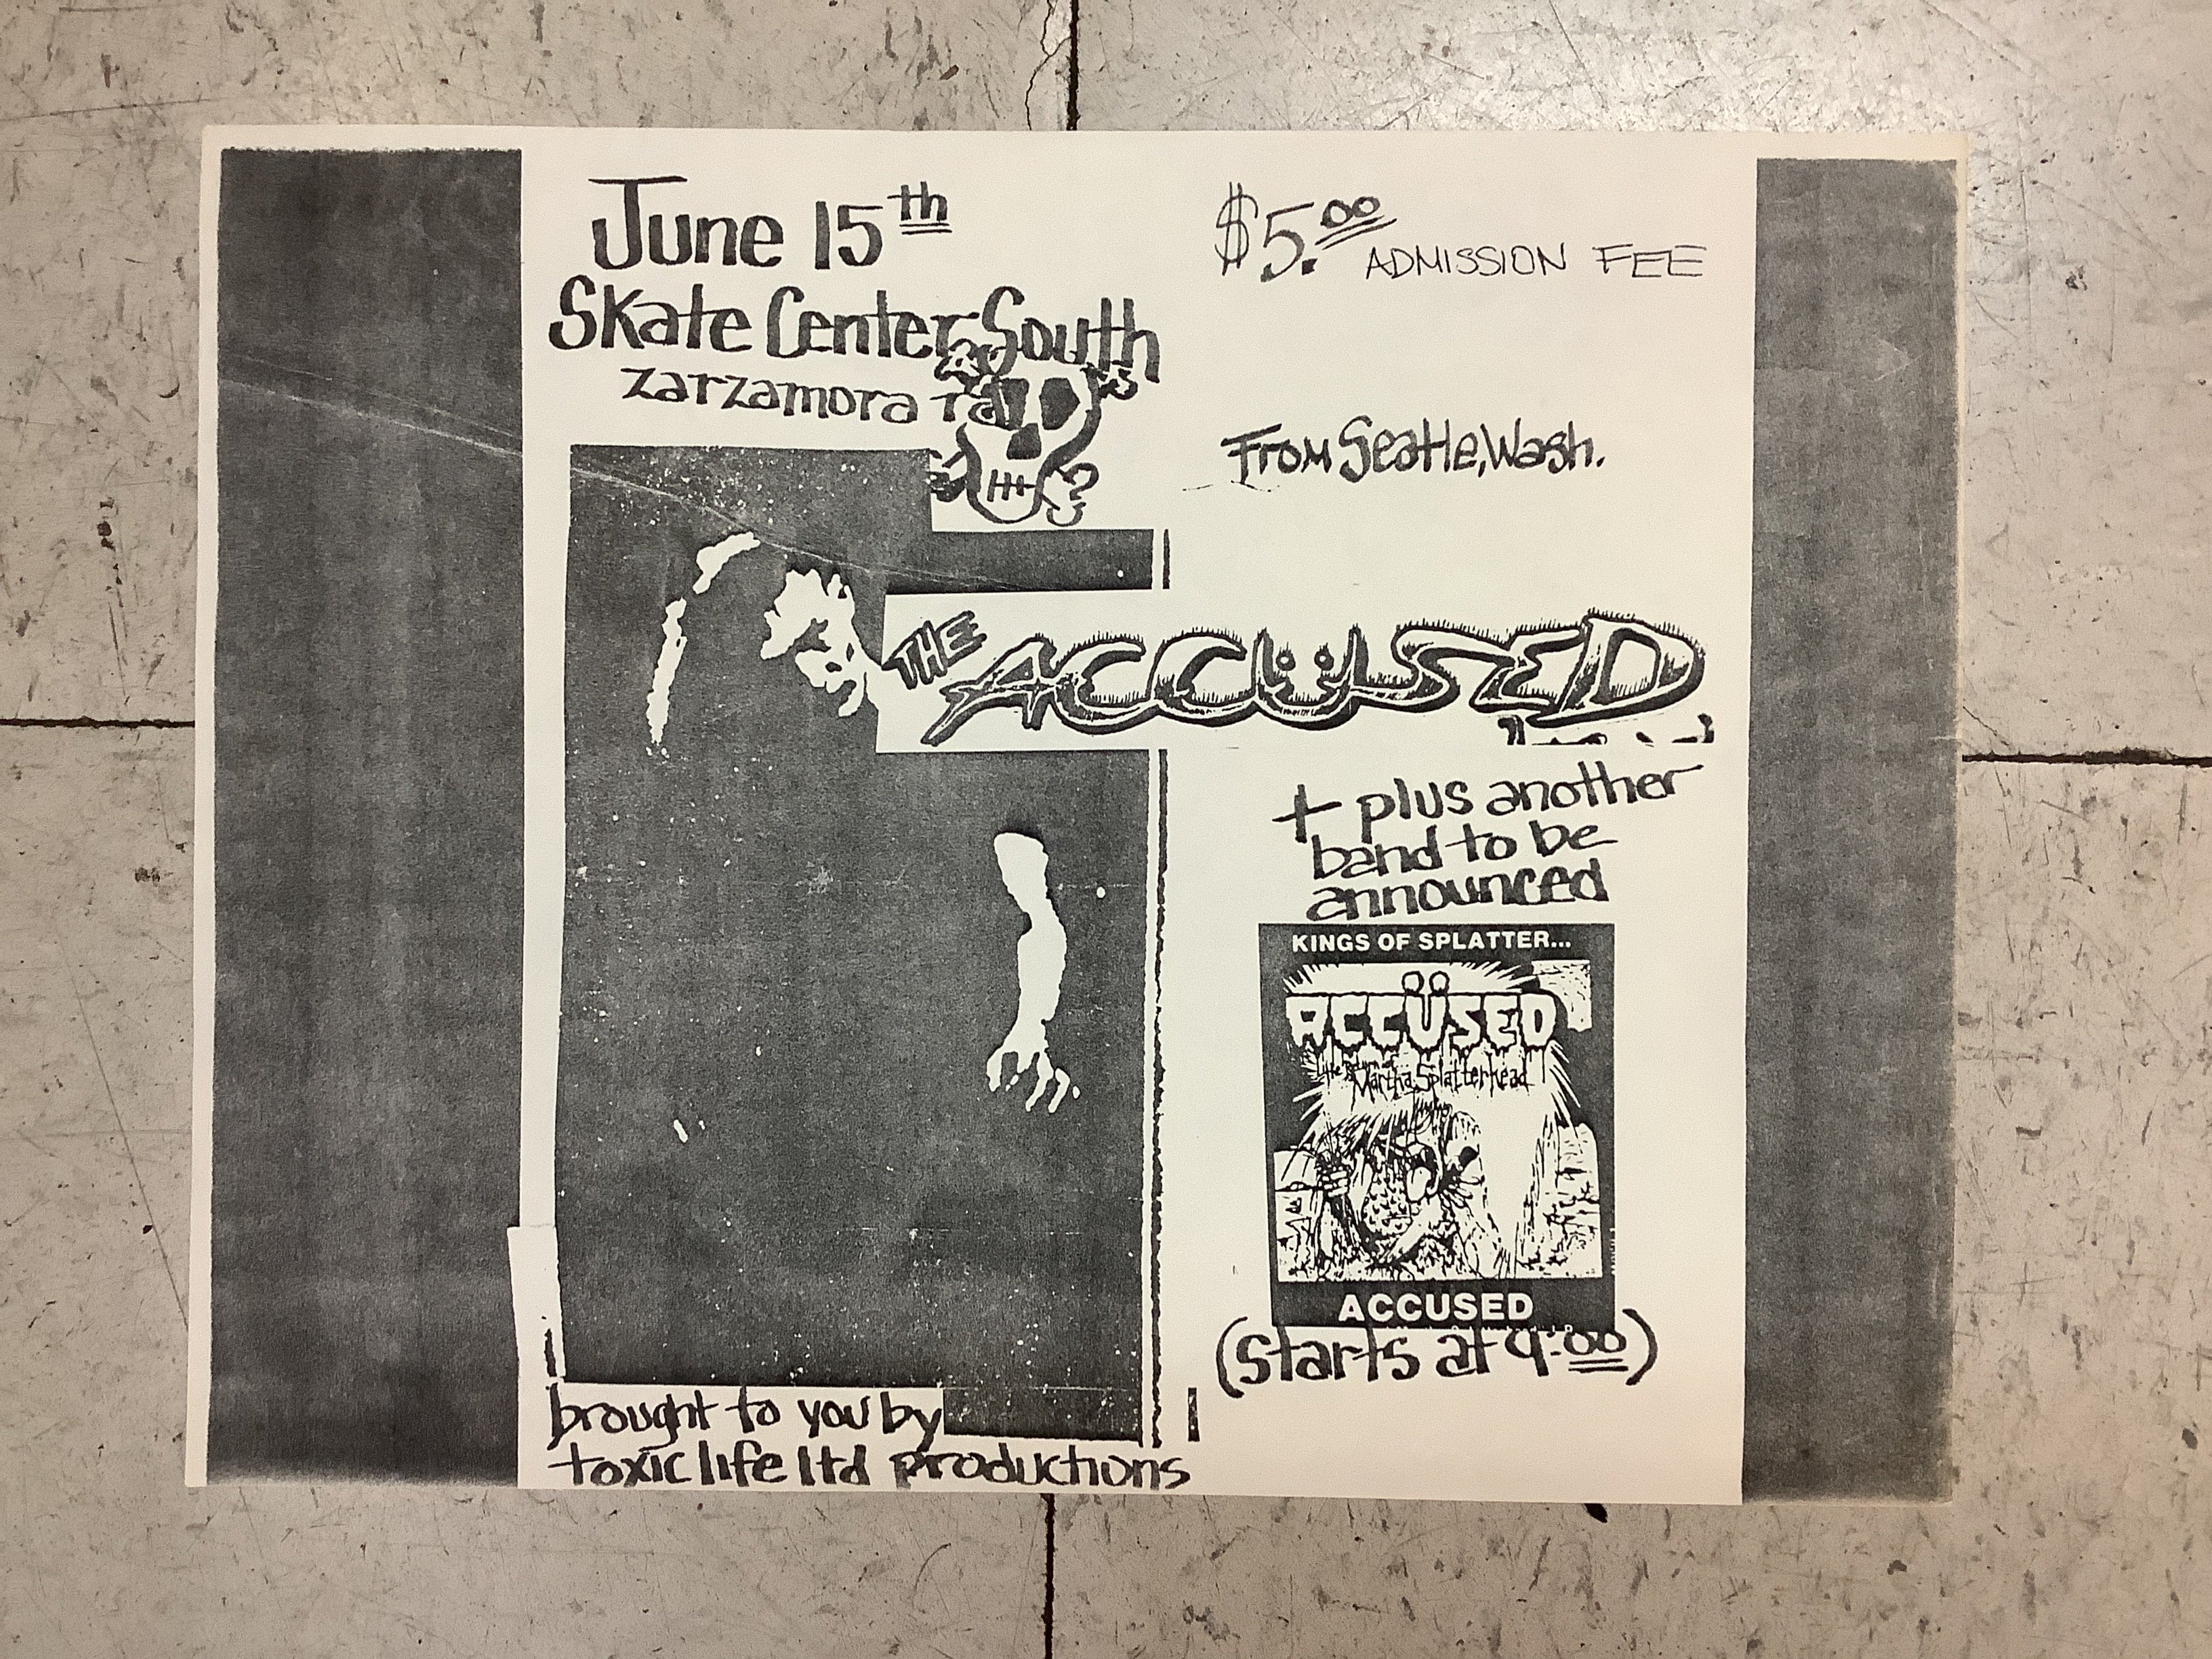 June 15th
Skate Center South
zarzamora rd
$5.00 ADMISSION FEE
From Seattle, Wash.
THE ACCÜSED
+ plus another
band to be
announced
KINGS OF SPLATTER...
ACCÜSED
Martha Splatterhead
ACCUSED
(starts at 9:00)
brought to you by
toxic life ltd productions